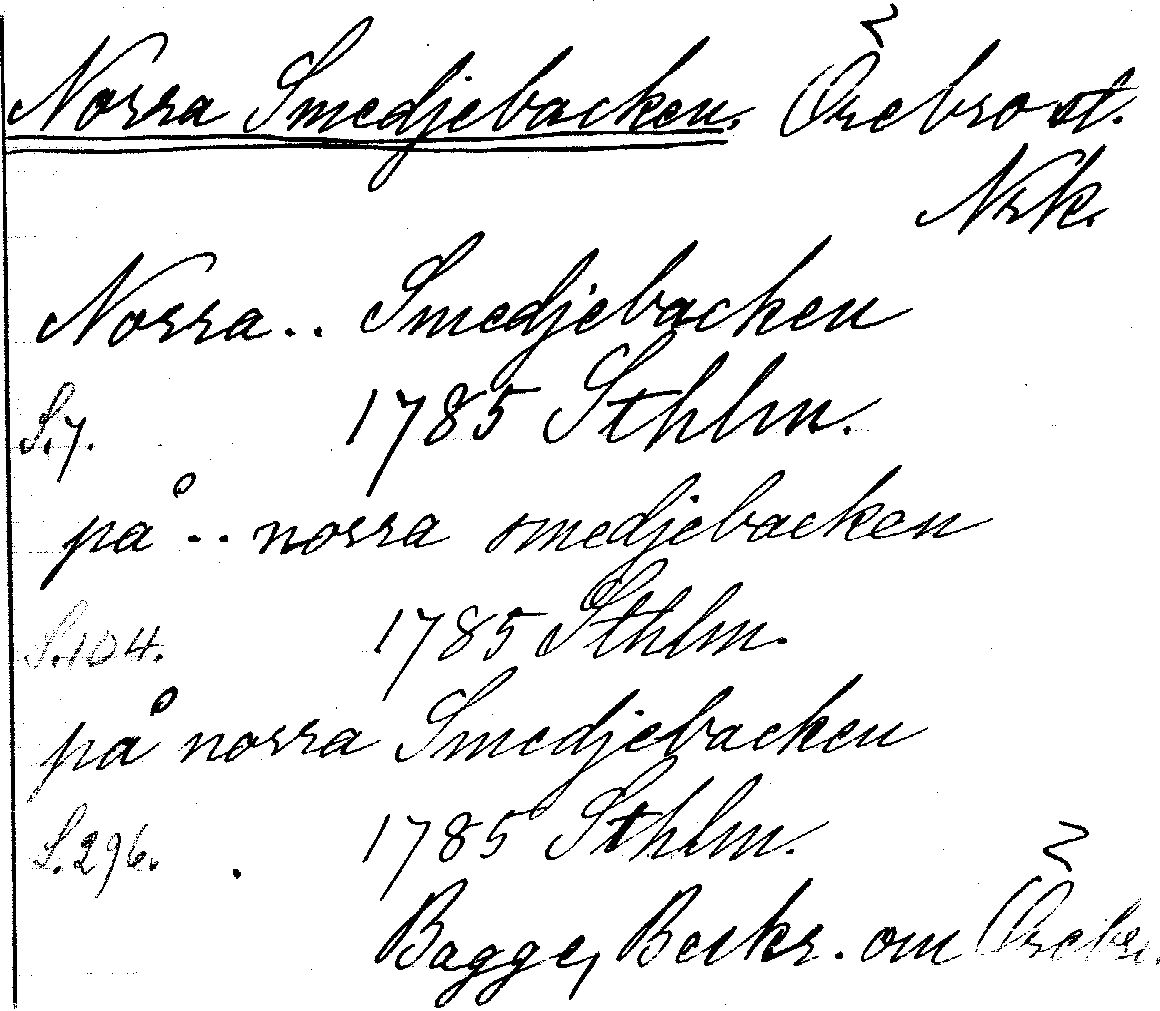 Norra Smedjebacken. Örebro st.
Nrk.
Norra.. Smedjebacken
S.7. 1785 Sthlm.
på .. norra smedjebacken
S.104. 1785 Sthlm.
på norra Smedjebacken
S.296. 1785 Sthlm.
Bagge, Beskr. om Örebro.